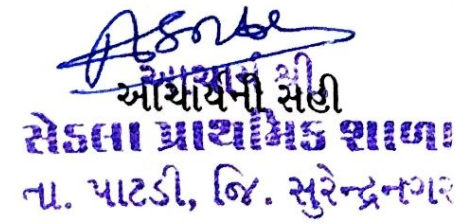 આચાર્ય શ્રી
આચાર્યની સહી
સેડલા પ્રાથમિક શાળા
તા. પાટડી, જિ. સુરેન્દ્રનગર